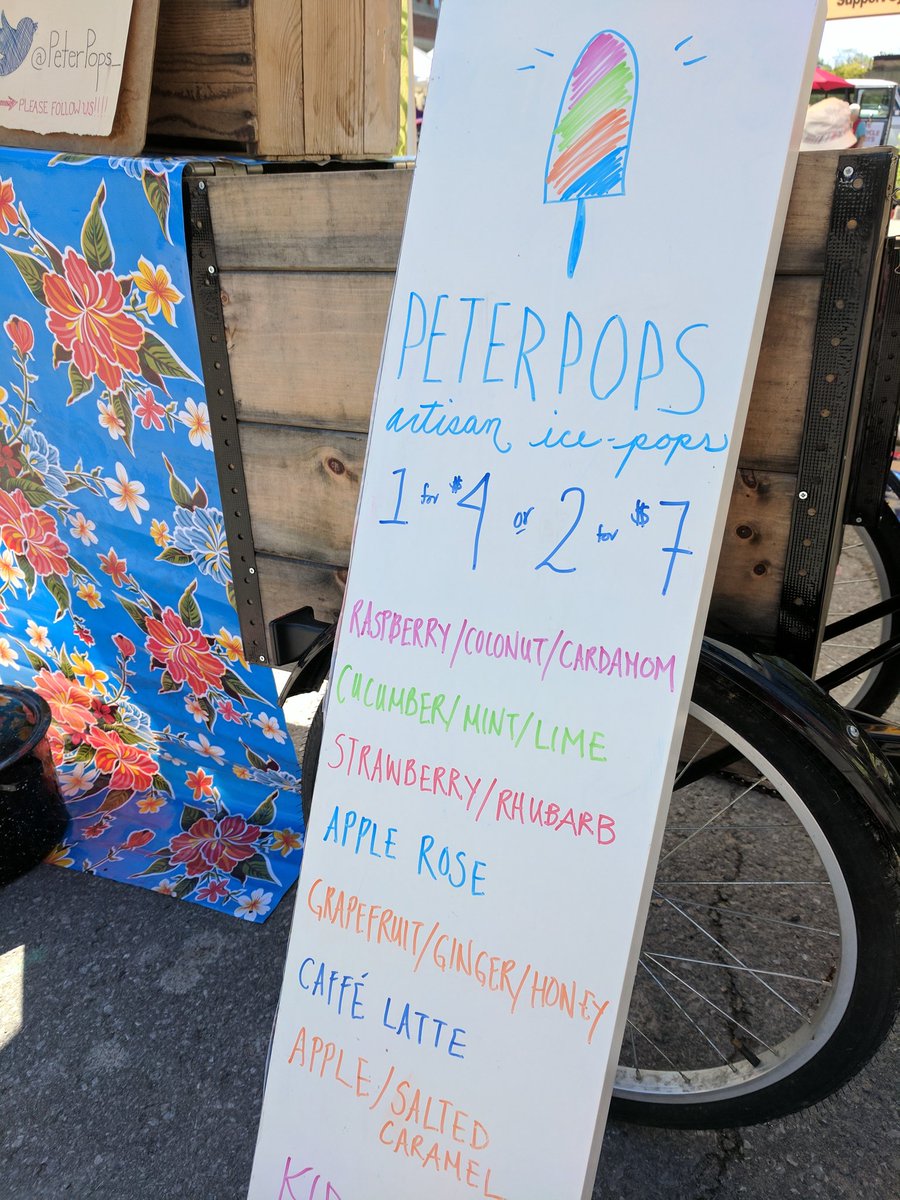 @PeterPops_
PLEASE FOLLOW US!!!!
PETERPOPS
artisan ice-pops
1 for $4 or 2 for $7
RASPBERRY/COCONUT/CARDAMOM
CUCUMBER/MINT/LIME
STRAWBERRY/RHUBARB
APPLE ROSE
GRAPEFRUIT/GINGER/HONEY
CAFFÉ LATTE
APPLE/SALTED
CARAMEL